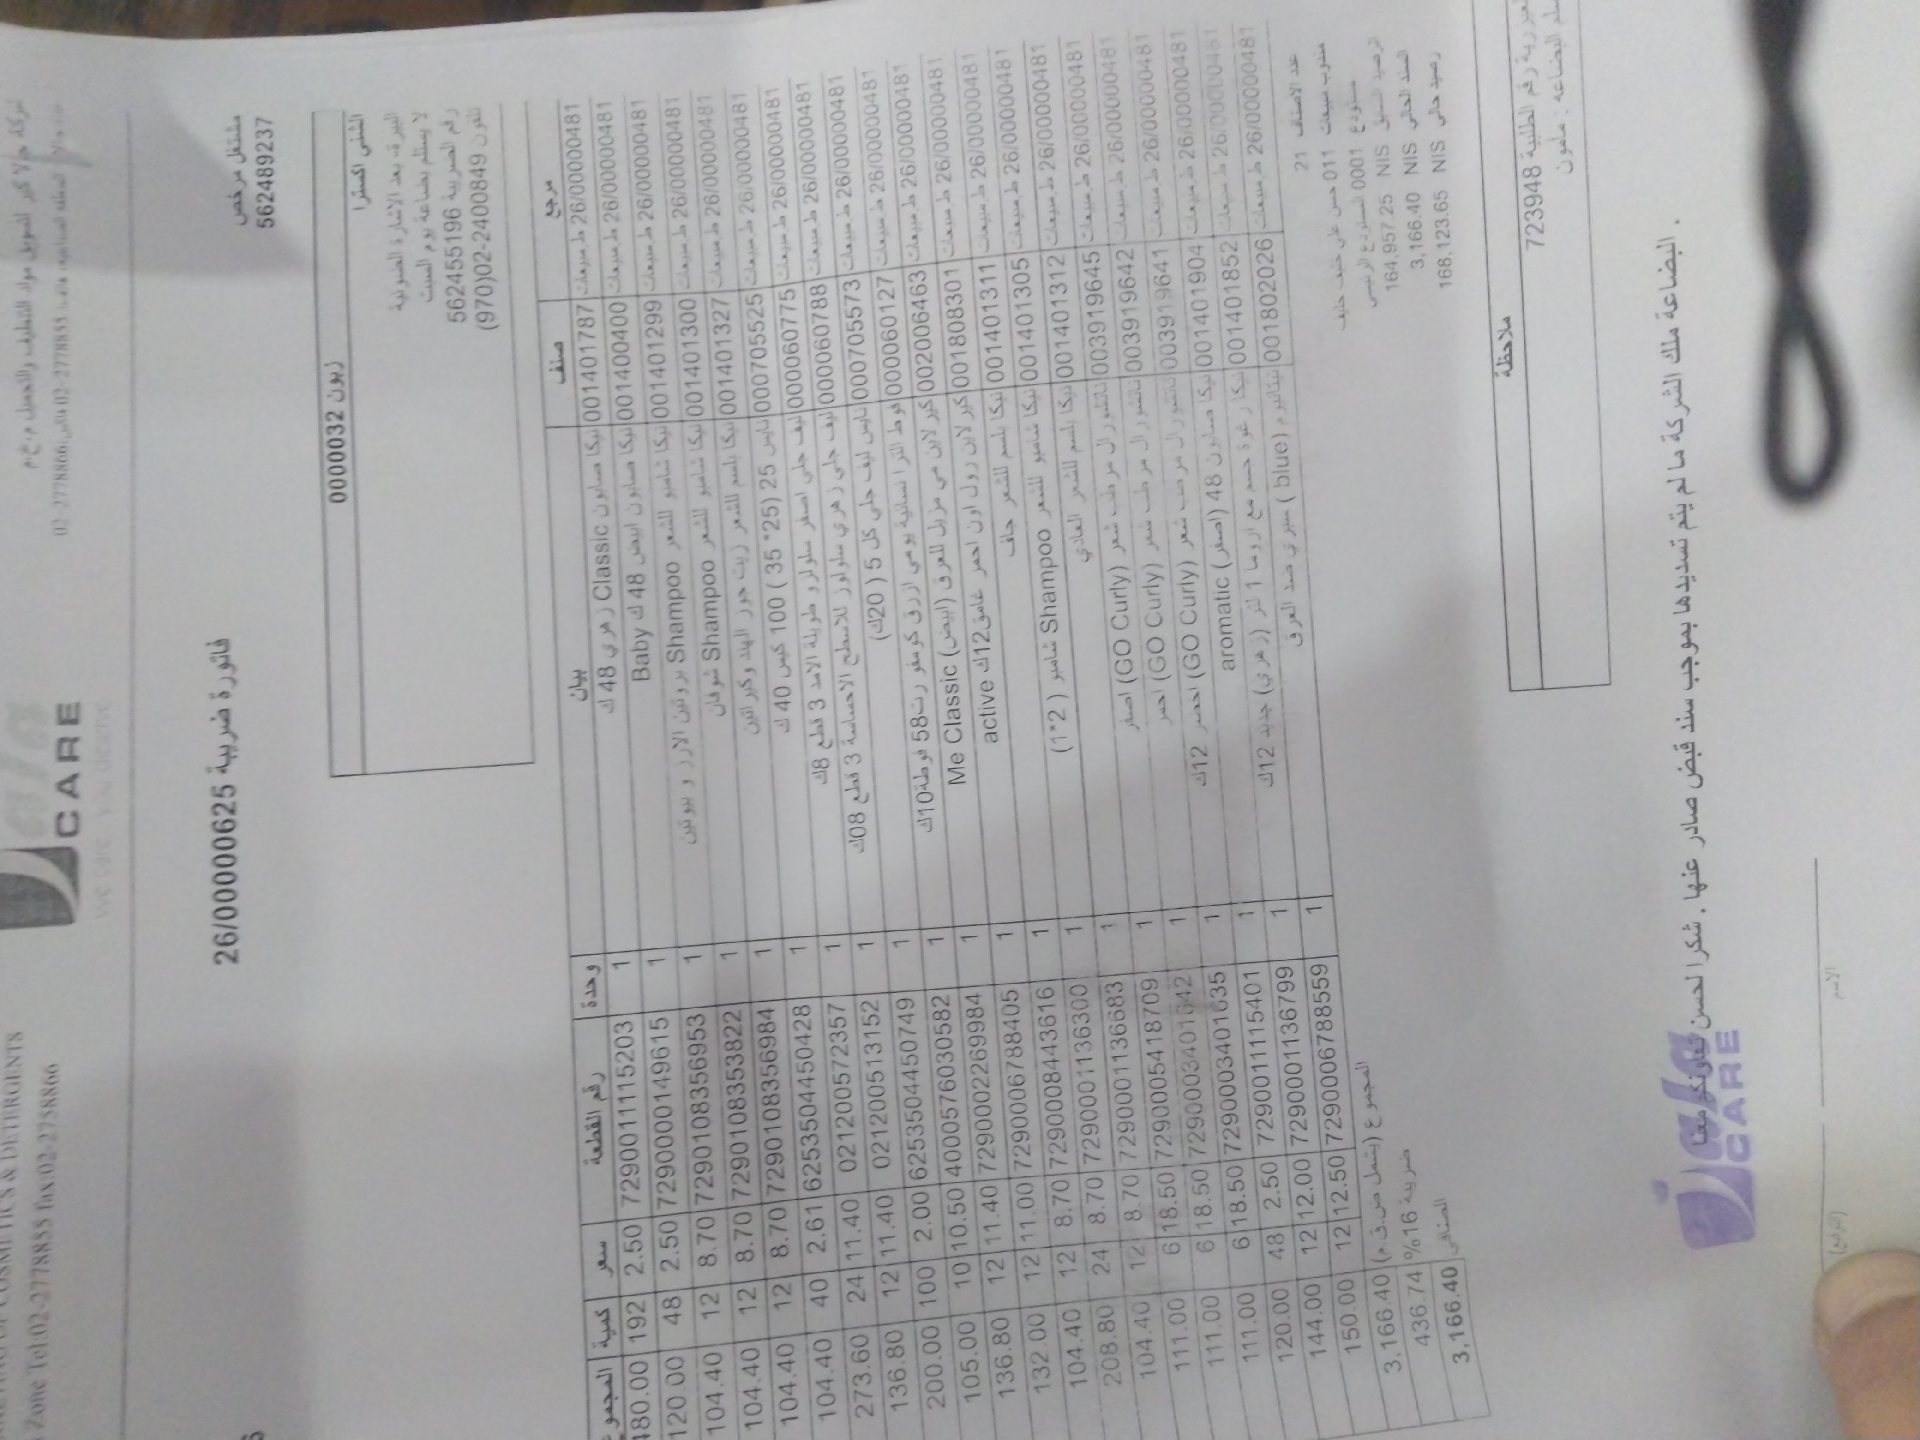 COSMETICS & DETERGENTS
Zone Tel:02-2778855 fax:02-2758866
CARE
We care you deserve
مشتغل مرخص
562489237
فاتورة ضريبية 26/00000625
زبون 0000032
لا يستلم بضاعة يوم السبت
رقم الضريبة 562455196
تلفون 02-2400849(970)
مرجع صنف بيان وحدة رقم القطعة سعر كمية المجموع
ط.مبيعات 26/00000481 001401787 نيكا صابون Classic زهري 48 ك 1 7290011115203 2.50 192 480.00
ط.مبيعات 26/00000481 001400400 نيكا صابون ابيض 48 ك Baby 1 7290000149615 2.50 48 120.00
ط.مبيعات 26/00000481 001401299 نيكا شامبو للشعر Shampoo بروتين الارز و بيوتين 1 7290108356953 8.70 12 104.40
ط.مبيعات 26/00000481 001401300 نيكا شامبو للشعر Shampoo شوفان 1 7290108353822 8.70 12 104.40
ط.مبيعات 26/00000481 001401327 نيكا بلسم للشعر زيت جوز الهند وكيراتين 1 7290108356984 8.70 12 104.40
ط.مبيعات 26/00000481 000705525 نايس 25 (25* 35 ) 100 كيس 40 ك 1 6253504450428 2.61 40 104.40
ط.مبيعات 26/00000481 000060775 ليف جلي اصفر سلولوز و طويلة الامد 3 قطع 8ك 1 021200572357 11.40 24 273.60
ط.مبيعات 26/00000481 000060788 ليف جلي زهري سلولوز للاسطح الاحساسة 3 قطع 08ك 1 021200513152 11.40 12 136.80
ط.مبيعات 26/00000481 000705573 نايس ليف جلي كل 5 ( 20ك) 1 6253504450749 2.00 100 200.00
ط.مبيعات 26/00000481 000060127 فوط الترا نسائية يومي ازرق كومفورت58 فوطة10ك 1 4000576030582 10.50 10 105.00
ط.مبيعات 26/00000481 002006463 كير لاين مي مزيل للعرق (ابيض) Me Classic 1 7290002269984 11.40 12 136.80
ط.مبيعات 26/00000481 001808301 كير لاين رول اون احمر غامق12ك active 1 7290006788405 11.00 12 132.00
ط.مبيعات 26/00000481 001401311 نيكا بلسم للشعر جاف 1 7290008443616 8.70 12 104.40
ط.مبيعات 26/00000481 001401305 نيكا شامبو للشعر Shampoo شامبو ( 2*1) 1 7290001136300 8.70 24 208.80
ط.مبيعات 26/00000481 001401312 نيكا بلسم للشعر العادي 1 7290001136683 8.70 12 104.40
ط.مبيعات 26/00000481 003919645 ناتشورال مرطب شعر (GO Curly) اصفر 1 7290005418709 18.50 6 111.00
ط.مبيعات 26/00000481 003919642 ناتشورال مرطب شعر (GO Curly) احمر 1 7290003401042 18.50 6 111.00
ط.مبيعات 26/00000481 003919641 ناتشورال مرطب شعر (GO Curly) اخضر 12ك 1 7290003401035 18.50 6 111.00
ط.مبيعات 26/00000481 001401904 نيكا صابون 48 (اصفر) aromatic 1 7290011115401 2.50 48 120.00
ط.مبيعات 26/00000481 001401852 نيكا رغوة حمام مع اروما 1 لتر (زهري) جديد 12ك 1 7290001136799 12.00 12 144.00
ط.مبيعات 26/00000481 001802026 (blue ) سبري ضد العرق 1 7290006788559 12.50 12 150.00
عدد الاصناف 21
المجموع (يشمل ض.ق.م) 3,166.40
مندوب مبيعات 011 حسن علي خليف خليف
ضريبة 16% 436.74
مستودع 0001 المستودع الرئيسي
الصافي 3,166.40
الرصيد السابق NIS 164,957.25
السند الحالي NIS 3,166.40
رصيد حالي NIS 168,123.65
ملاحظة
رقم الطلبية 723948
البضاعة : مأمون
البضاعة ملك الشركة ما لم يتم تسديدها بموجب سند قبض صادر عنها . شكرا لحسن تعاونكم معنا .
الاسم
CARE